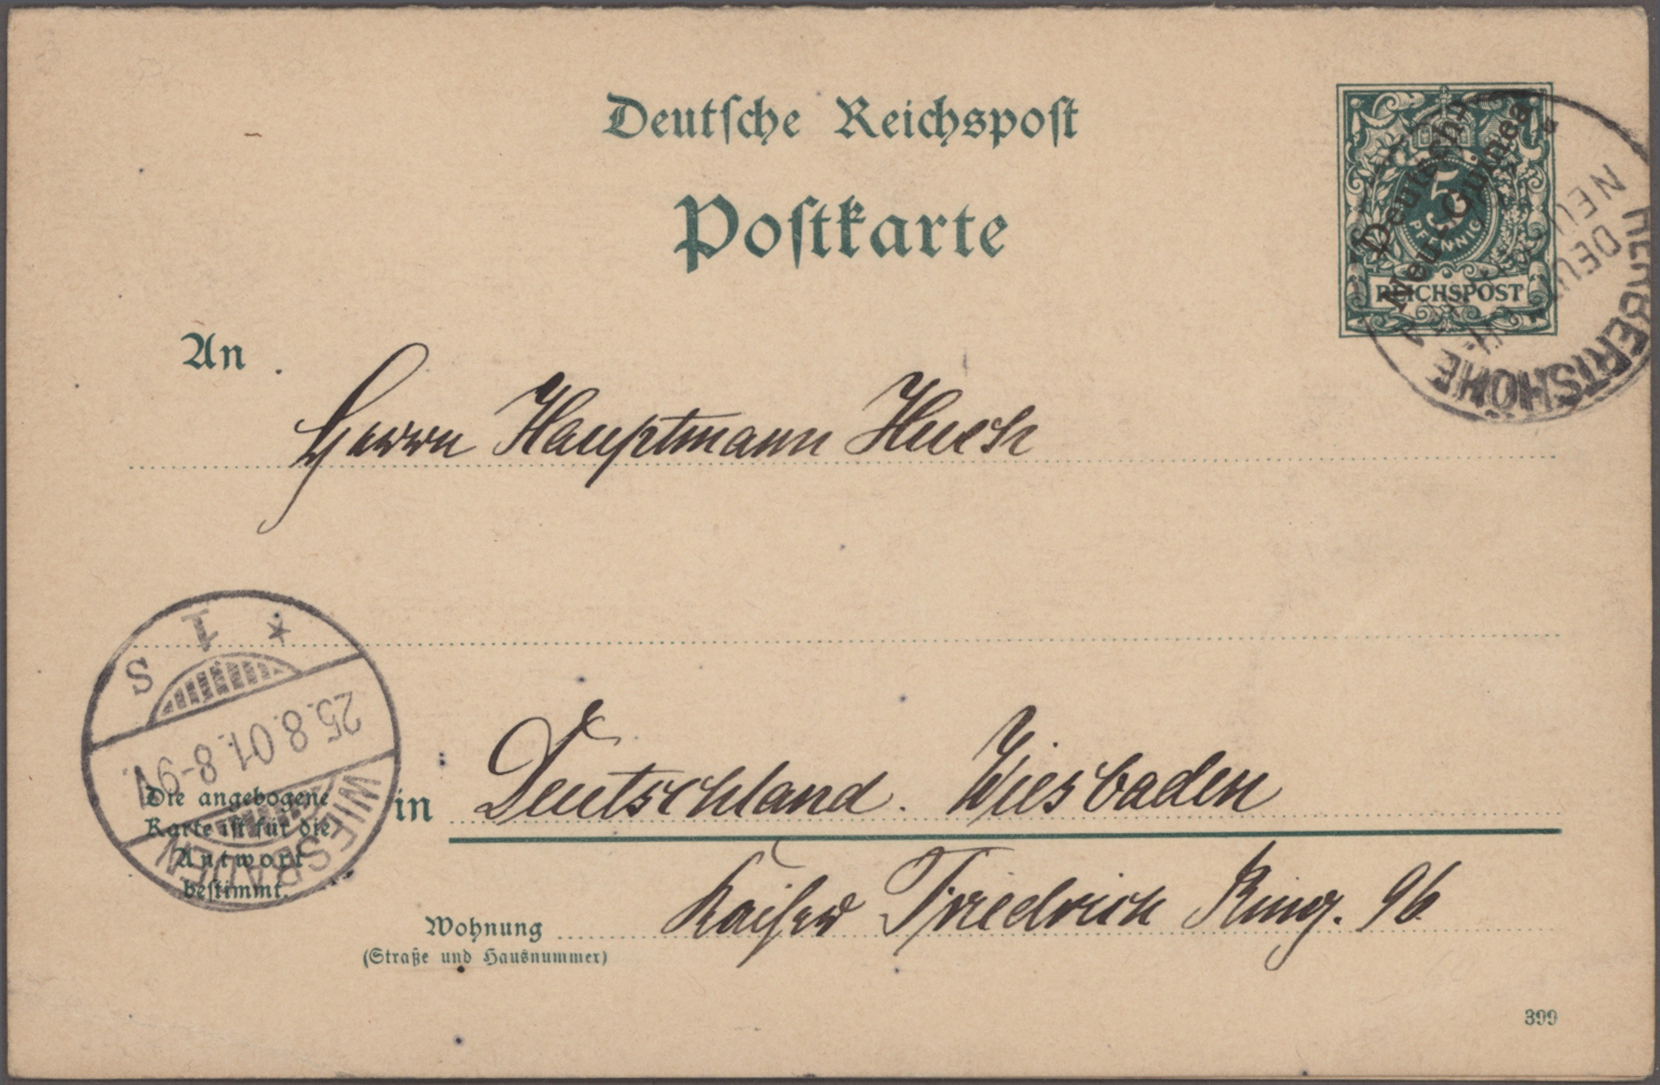 Deutsche Reichspost
Postkarte
5
PFENNIG
REICHSPOST
Deutsch-
Neu-Guinea
HERBERTSHÖHE
DEUTSCH-
NEU
An
Herrn Hauptmann
* 1 S
25.8.01. 8-9V.
WIESBADEN
Die angebogene
Karte ist für die
Antwort
bestimmt.
in Deutschland. Wiesbaden
Wohnung Kaiser Friedrich Ring. 96
(Straße und Hausnummer)
399